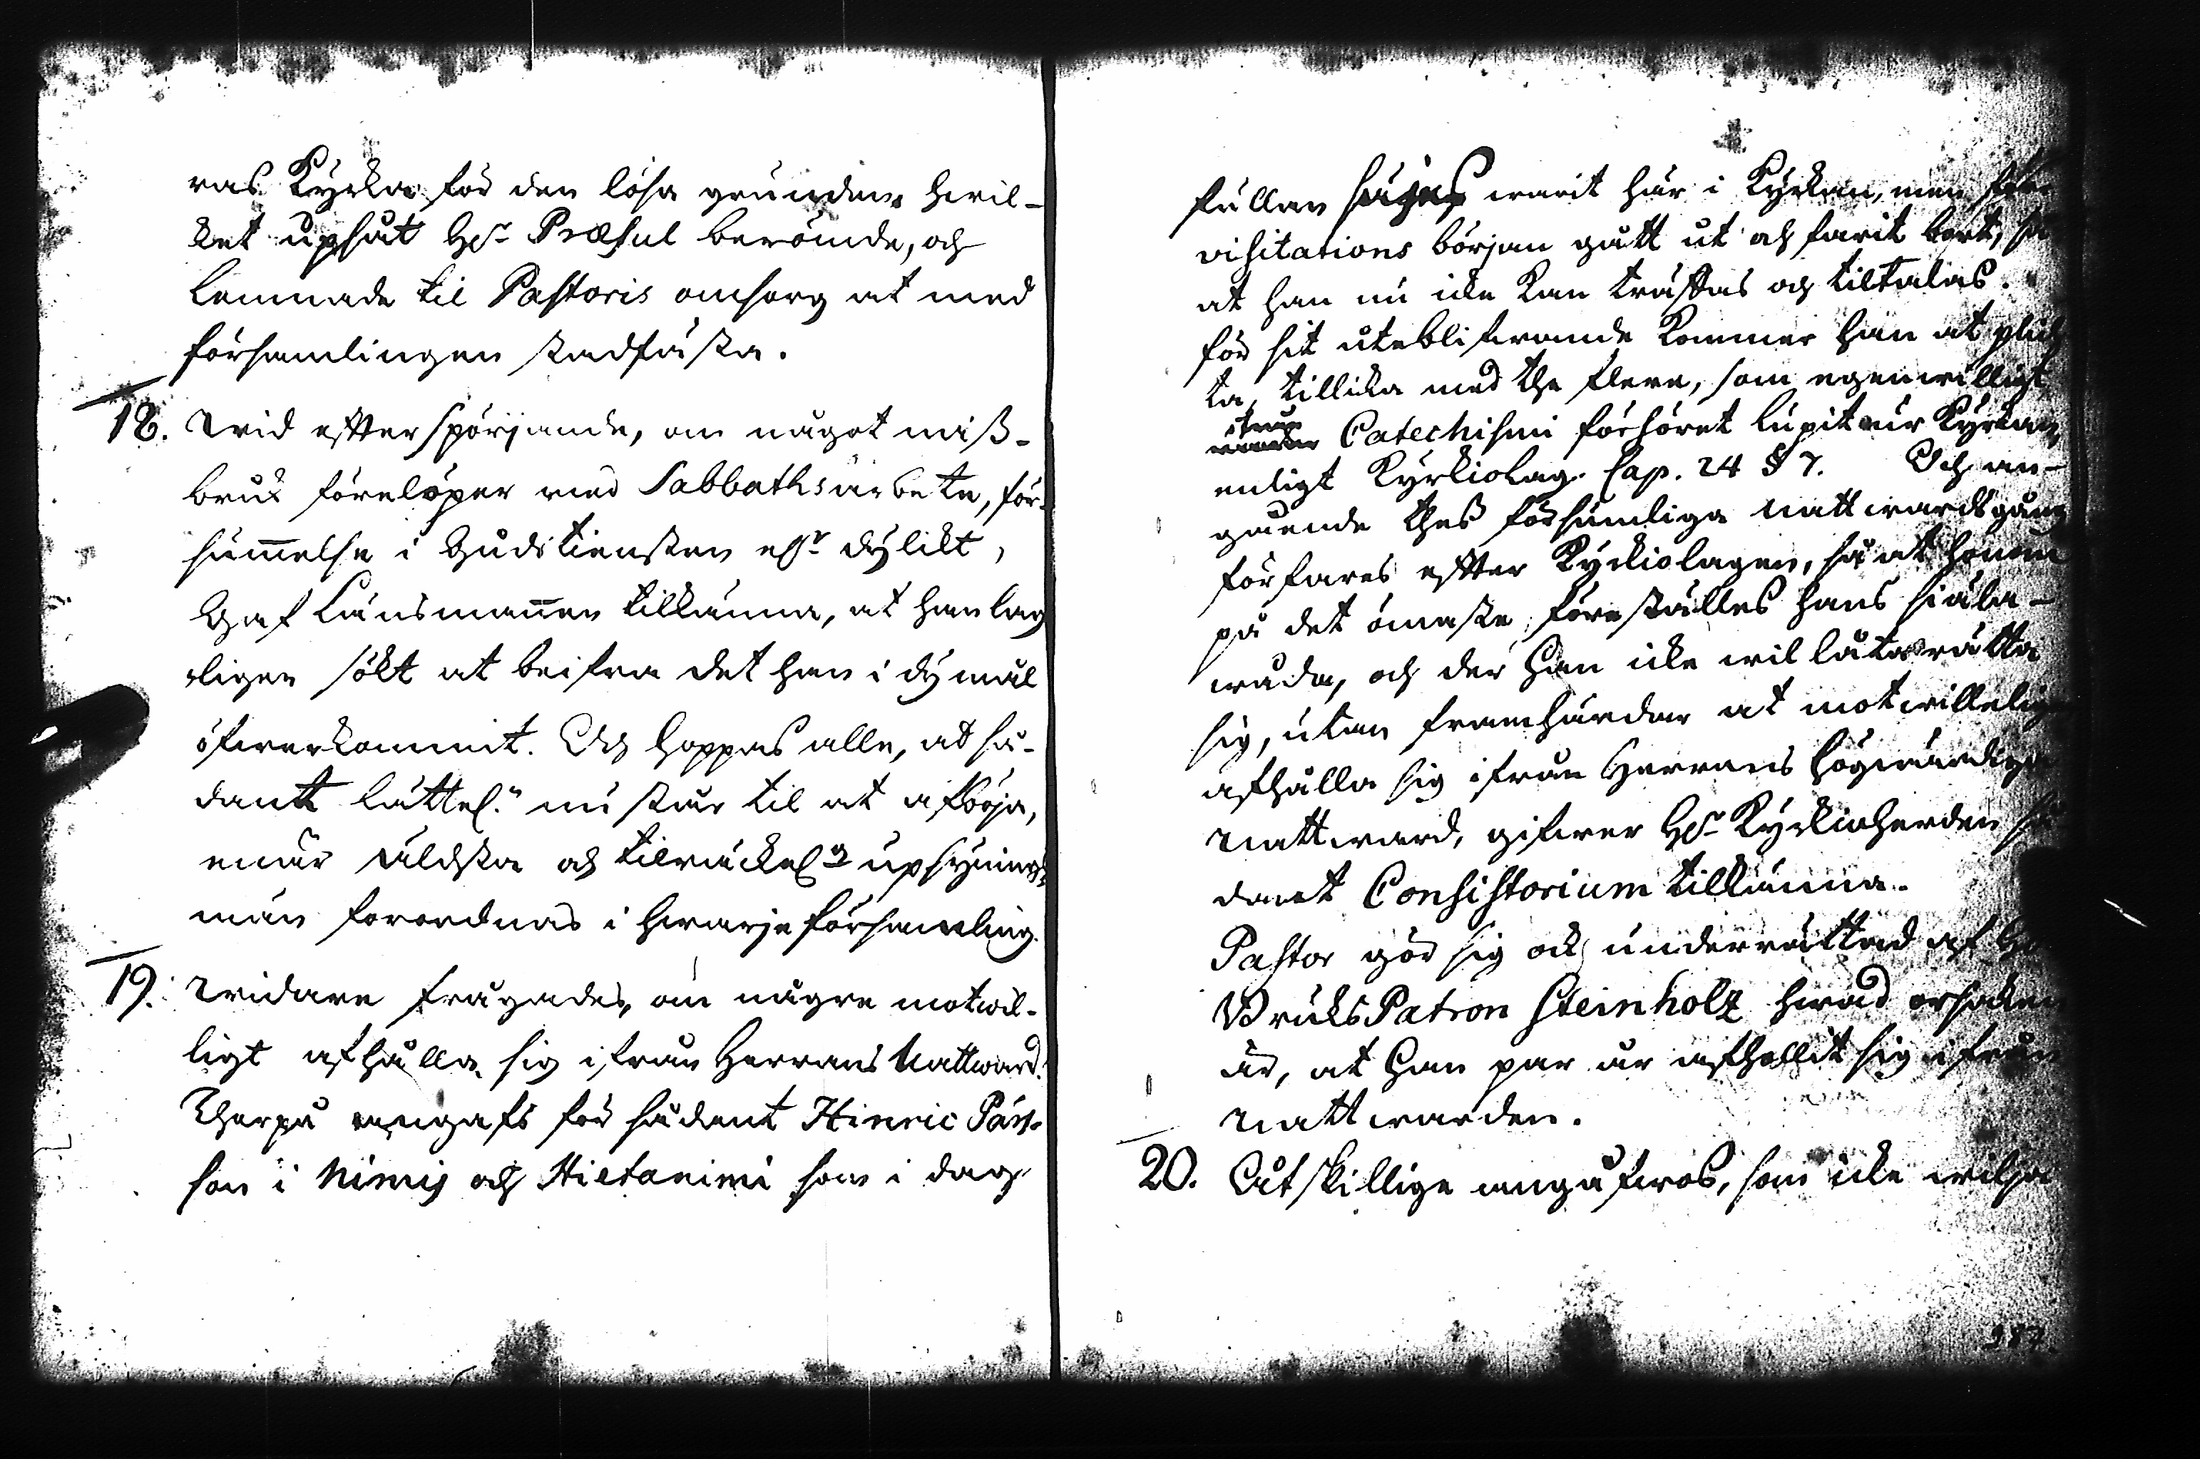 ras Kyrka för den lösa grunden, hwil-
ket upsåt H:r Præsul berömde, och
lemnade til Pastoris omsorg at med
församlingen stadfästa.
18. Wid efterspörjande, om något miss-
bruk förelöper med Sabbaths arbete, för-
summelse i Gudstiensten ell:r dylikt,
Gaf Länsmannen tillkänna, at han lag
ligen sökt at beifra det han i dy mål
öfwerkommit. Och hoppas alle, at så-
dant lättel:n nu står til at afböja,
emär äldsta och tilräckel:a upsynings
män förordnas i hwarje församling.
19. Widare frågades, om någre motwil-
ligt afhålla sig ifrån Herrans Nattward.
Therpå angafs för sådant Hinric Pärs-
son i Nimis och Hietanimi som i dag
fullan säjes warit här i Kyrkan, men
visitations början gått ut och farit bort, så
at han nu icke kan träffas och tiltalas.
för sit uteblifwande kommer han at plich
ta, tillika med the flere, som egenwilligt
ifrån
Catechismi förhöret lupit ur Kyrkan,
enligt Kyrkiolag. Cap. 24 § 7. Och an-
gående thess försumliga nattwardsgång
förfares efter Kyrkiolagen, så at honom
på det ömaste föreställes hans siäla-
wåda, och der han icke wil låta rätta
sig, utan framhärdar at motwillelig
afhålla sig ifrån Herrans högwärdiga
nattward, gifwer H:r Kyrkioherden så
dant Consistorium tillkänna.
Pastor gör sig ock underrättad af
Bruks Patron Steinholtz hwad orsaken
är, at han par år afhållit sig ifrån
nattwarden.
20. Åtskillige angåfwos, som icke wilja
387